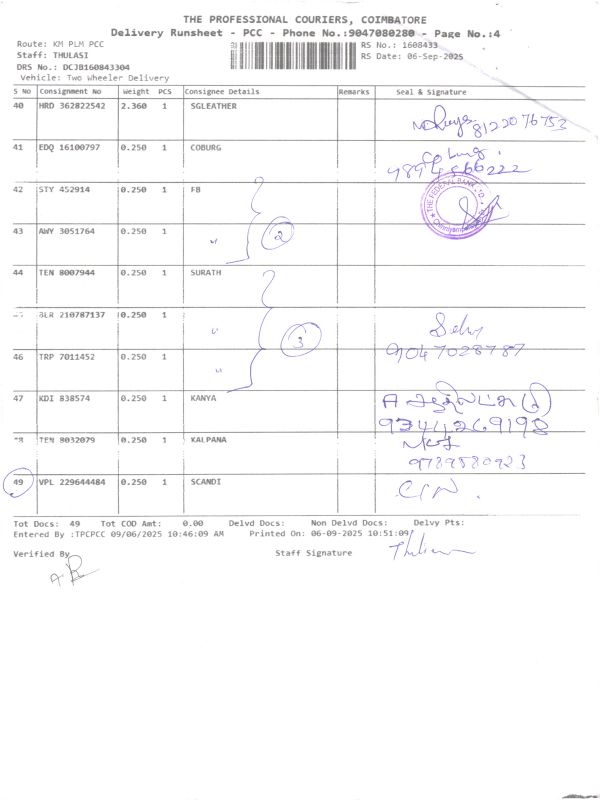 THE PROFESSIONAL COURIERS, COIMBATORE
Delivery Runsheet - PCC - Phone No.:9047080280 - Page No.:4
Route: KM PLM PCC
RS No.: 1608433
Staff: THULASI
RS Date: 06-Sep-2025
DRS No.: DCJB160843304
Vehicle: Two Wheeler Delivery
S No Consignment No Weight PCS Consignee Details Remarks Seal & Signature
40 HRD 362822542 2.360 1 SGLEATHER
8122076753
41 EDQ 16100797 0.250 1 COBURG
Coburg
9894566222
42 STY 452914 0.250 1 FB
THE FEDERAL BANK
43 AWY 3051764 0.250 1 〃
2
44 TEN 8007944 0.250 1 SURATH
BLR 210787137 0.250 1 〃
3
Selvy
9047028787
46 TRP 7011452 0.250 1 〃
47 KDI 838574 0.250 1 KANYA
9344269198
TEN 8032079 0.250 1 KALPANA
9789580923
49 VPL 229644484 0.250 1 SCANDI
Tot Docs: 49 Tot COD Amt: 0.00 Delvd Docs: Non Delvd Docs: Delvy Pts:
Entered By :TPCPCC 09/06/2025 10:46:09 AM Printed On: 06-09-2025 10:51:09
Verified By Staff Signature